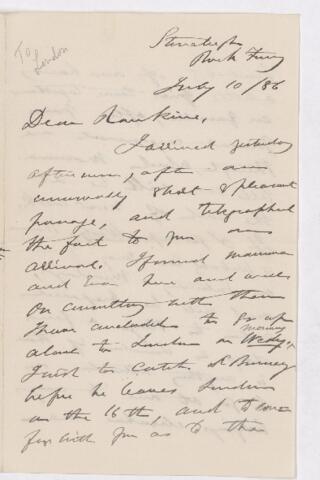 To London
Rock Ferry
July 10/86
Dear Rankine,
I arrived yesterday
afternoon, after an
unusually short & pleasant
passage, and telegraphed
the fact to you on
arrival. I found mamma
and Eva here and will
on consulting with them
I have concluded to go up
alone to London on Wedy
morning
I wish to catch
before he leaves London
on the 16th, and to con-
fer with you as to the